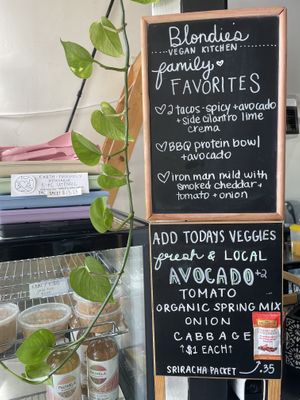 Blondies
VEGAN KITCHEN
family
FAVORITES
2 tacos-spicy + avocado
+ side cilantro lime
crema
BBQ protein bowl
+ avocado
iron man mild with
smoked cheddar +
tomato + onion
ADD TODAYS VEGGIES
fresh & LOCAL
AVOCADO +2
TOMATO
ORGANIC SPRING MIX
ONION
CABBAGE
↑$1 EACH↑
SRIRACHA PACKET .35